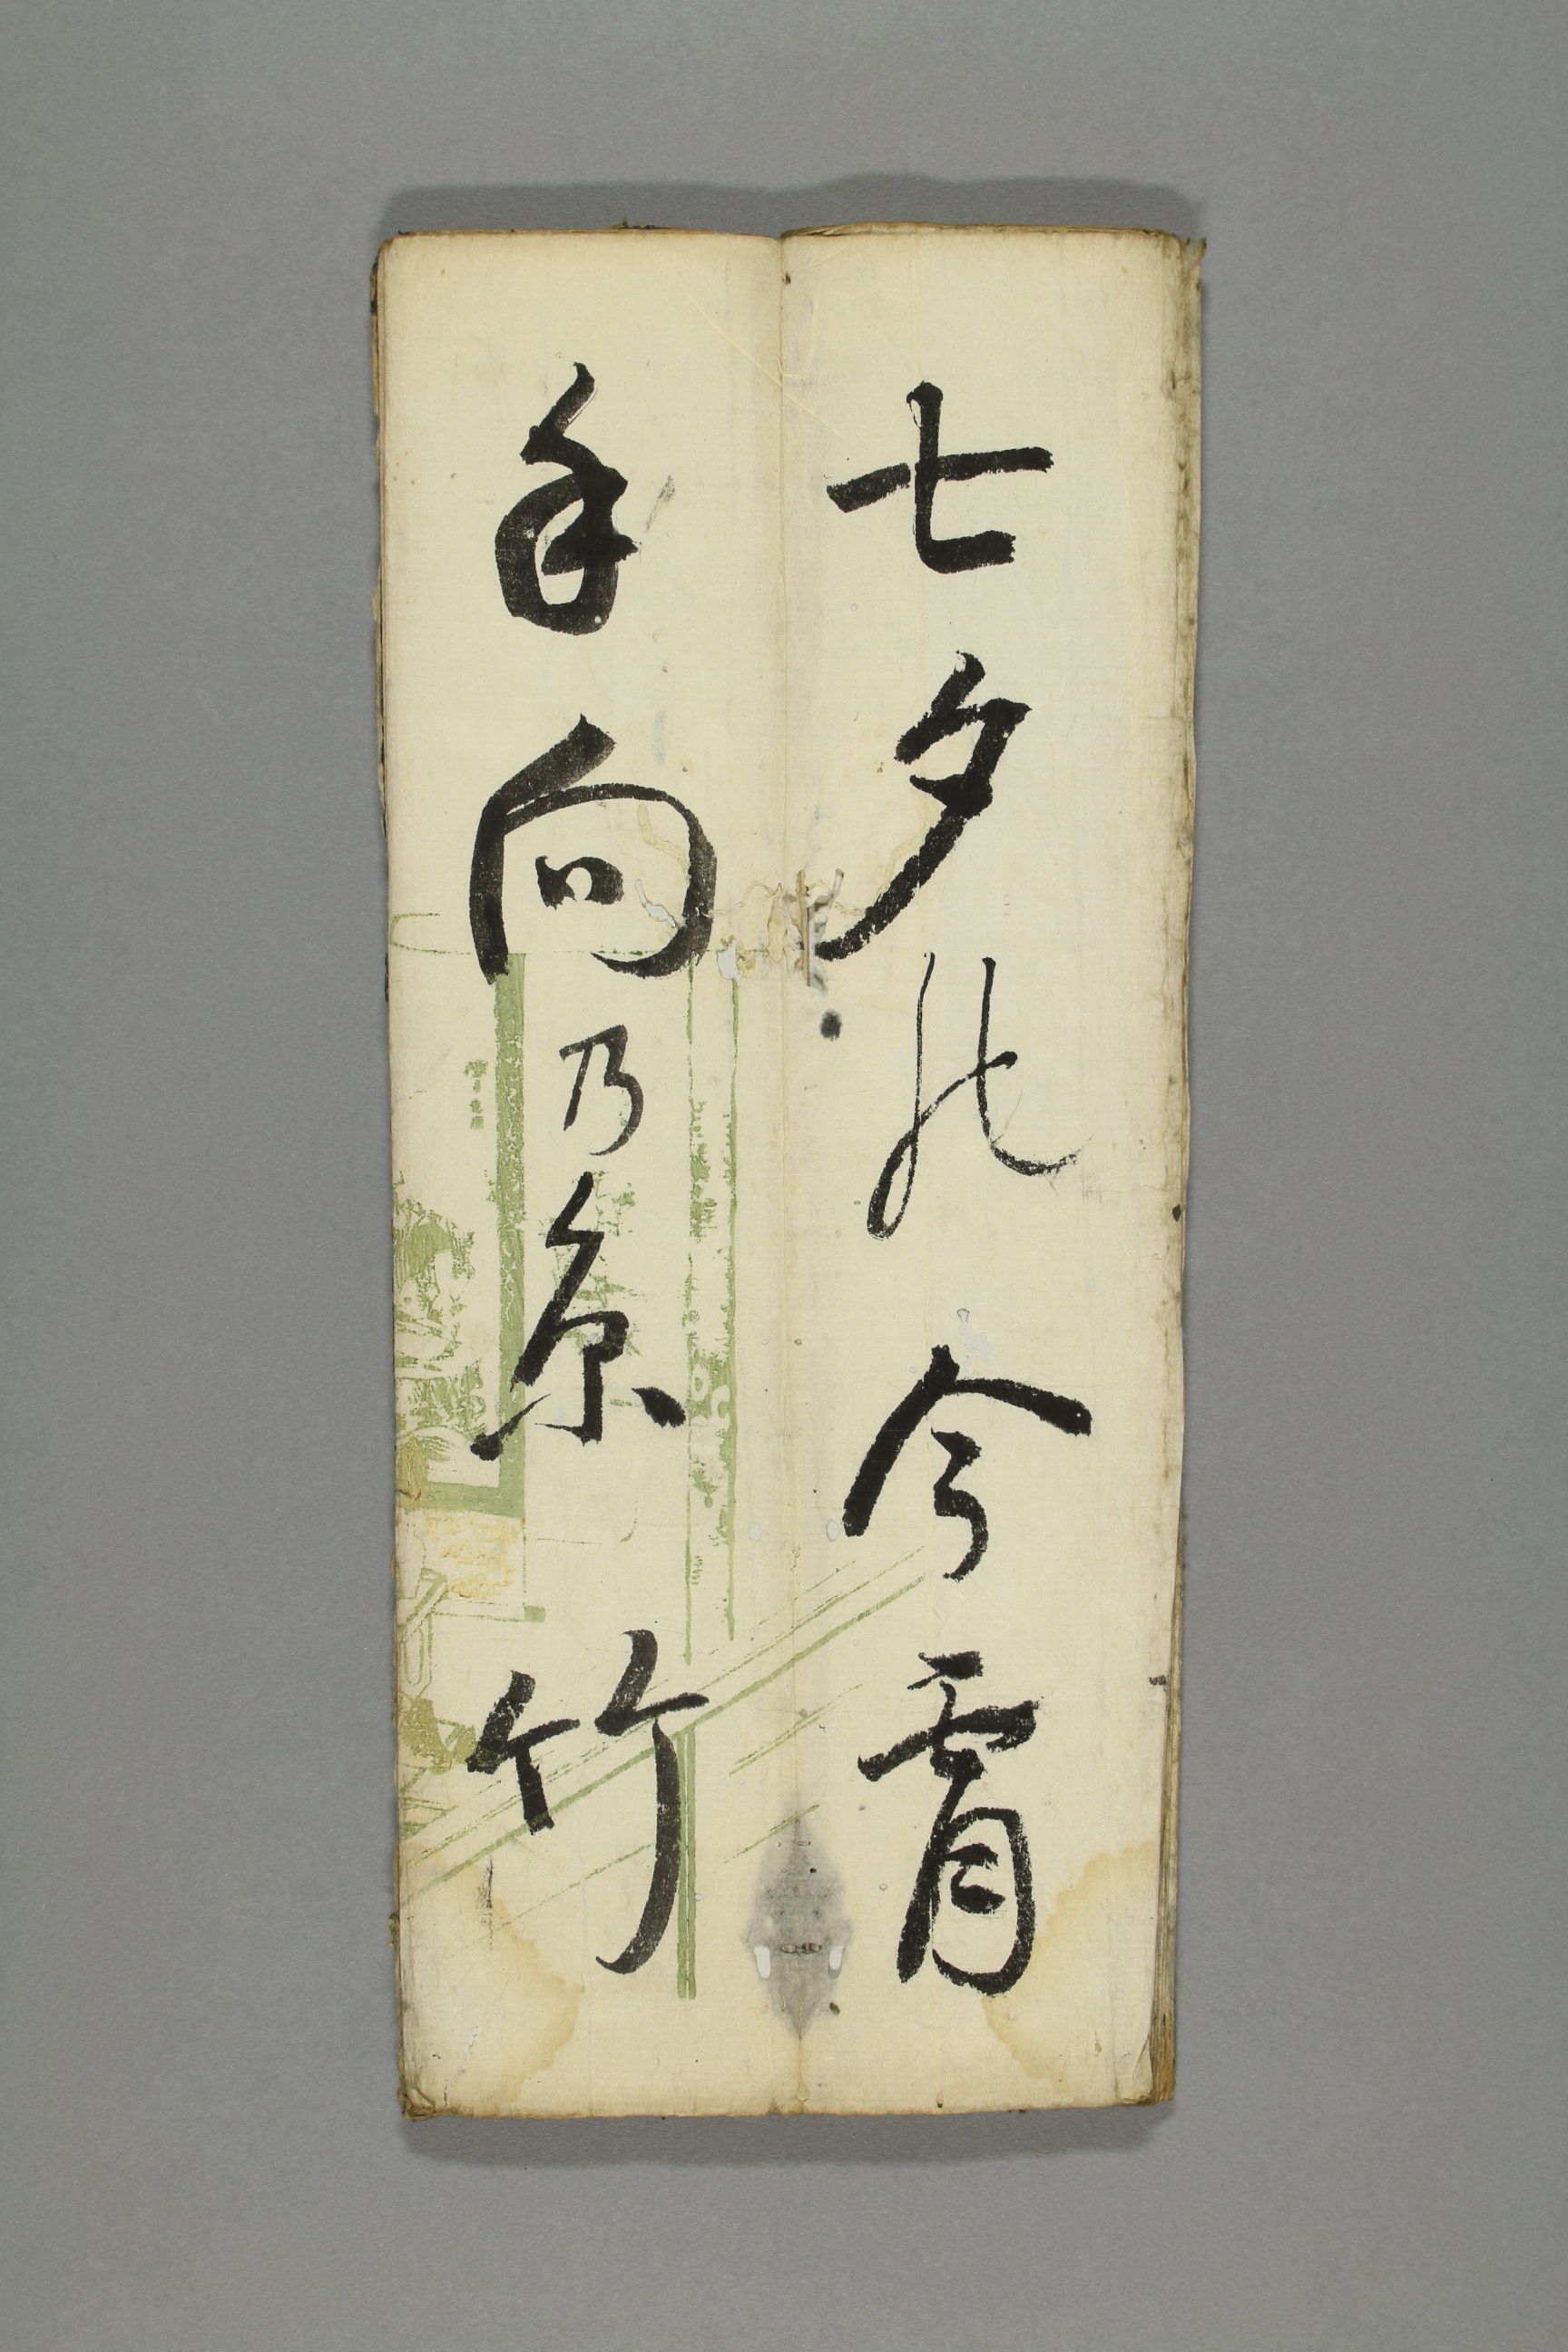 七夕能今霄
手向乃糸竹